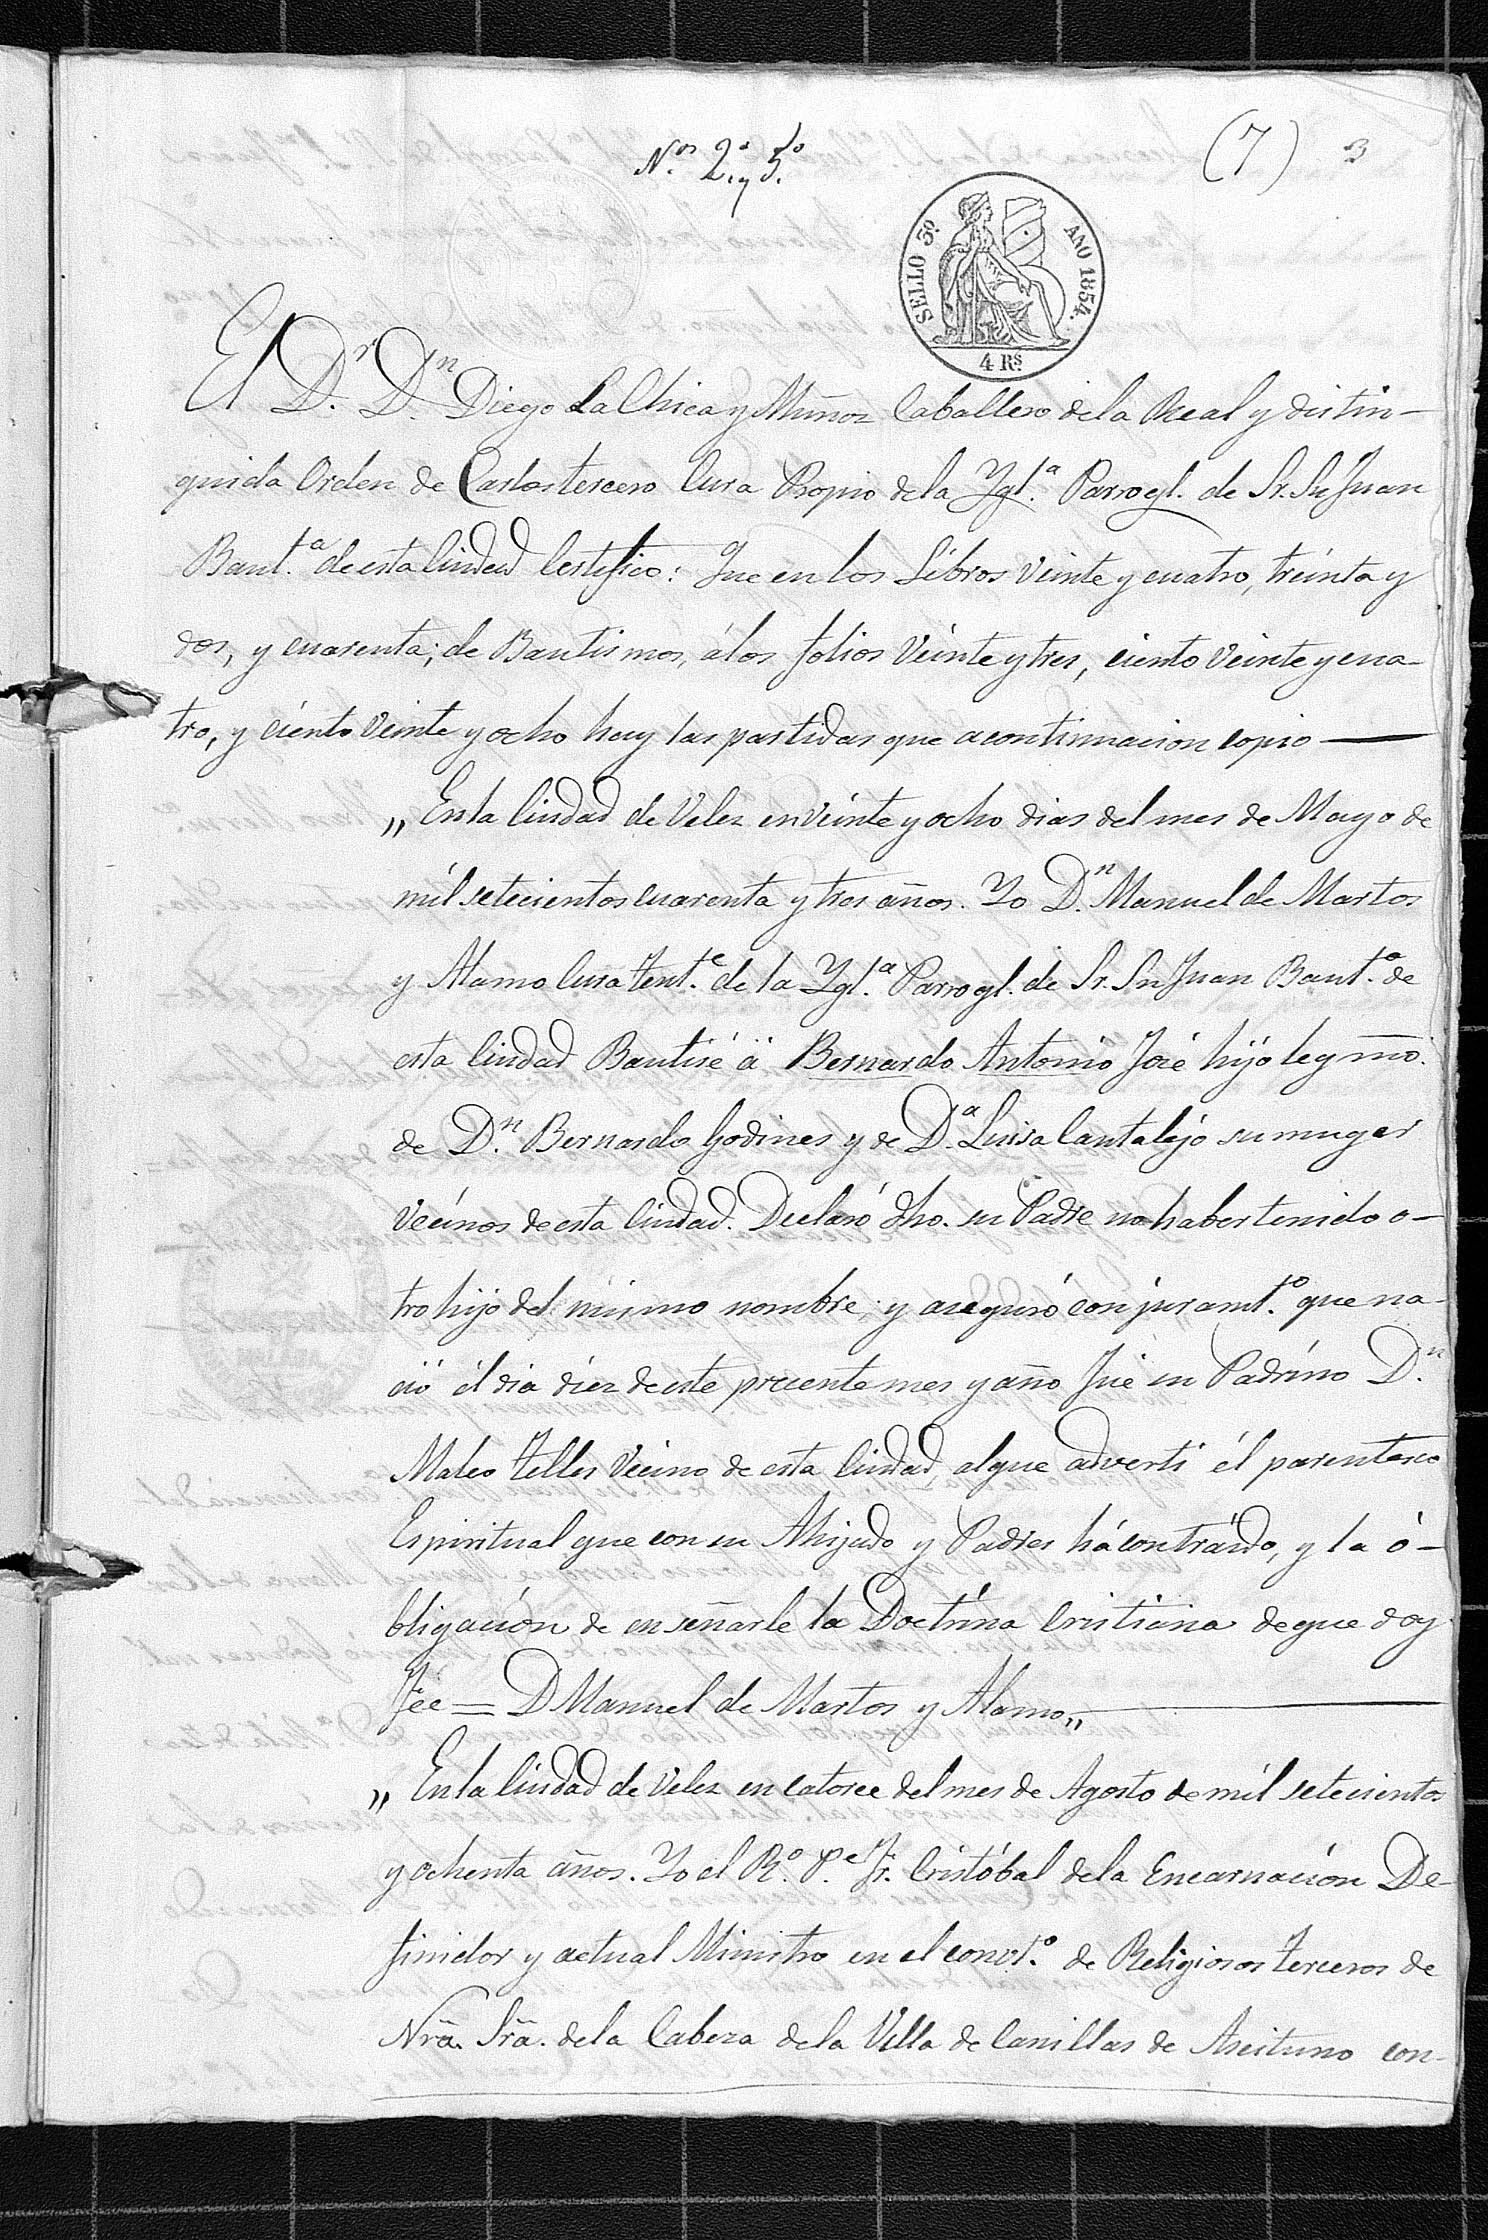 (7) 3
N.os 2.o y 5.o
SELLO 3º. AÑO 1854.
4 Rs.
El D.r D.n Diego LaChica y Muñoz Caballero de la Real y distin-
guida Orden de Carlos tercero Cura Propio de la Ygl.a Parrogl. de Sr. Sn Juan
Baut.a de esta Ciudad Certifico: Que en los Libros veinte y cuatro, treinta y
dos, y cuarenta; de Bautismos, á los folios Veinte y tres, ciento veinte y cua-
tro, y ciento veinte y ocho hay las partidas que acontinuacion copio —
„ En la Ciudad de Velez en veinte y ocho dias del mes de Mayo de
mil setecientos cuarenta y tres años. Yo D.n Manuel de Martos
y Alamo Cura Tent.e de la Ygl.a Parrogl. de Sr. Sn Juan Baut.a de
esta Ciudad Bautisé á Bernardo Antonio José hijo legmo.
de D.n Bernardo Godines y de D.a Luisa Cantalejo su muger
Vecinos de esta Ciudad. Declaró dho. su Padre no haber tenido o-
tro hijo del mismo nombre; y aseguró con juramt.o que na-
ció él dia diez de este presente mes y año Fué su Padrino D.n
Mateo Telles Vecino de esta Ciudad, al que advertí él parentesco
Espiritual que con su Ahijado y Padres há contraído, y la ó-
bligación de enseñarle la Doctrina Cristiana de que doy
Fée = D Manuel de Martos y Alamo „ —
„ En la Ciudad de Velez en catorce del mes de Agosto de mil setecientos
y ochenta años. Yo el R.o P.e Fr. Cristóbal de la Encarnación De-
finidor y actual Ministro en el convt.o de Religiosos terceros de
Nra. Sra. de la Cabeza de la Villa de Canillas de Aseituno con-